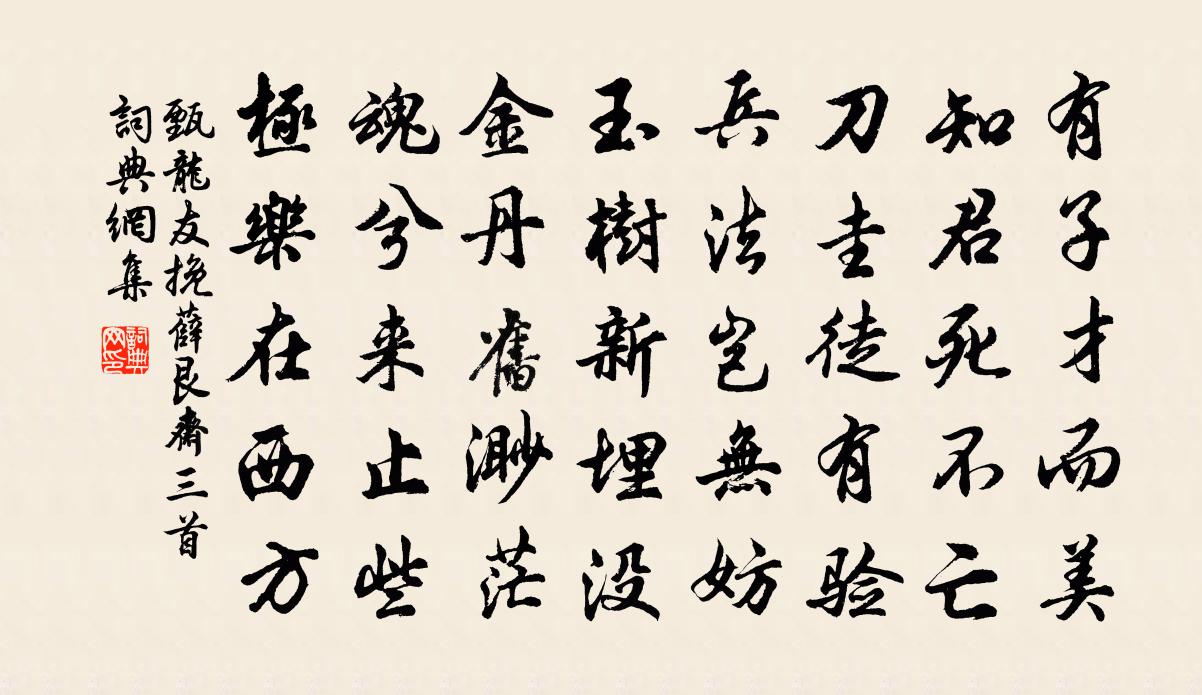 有子才而美
知君死不亡
刀圭徒有验
兵法岂無妨
玉樹新埋没
金丹舊渺茫
魂兮来止些
極樂在西方
甄龍友挽薛艮齋三首
詞典網集
詞典网印